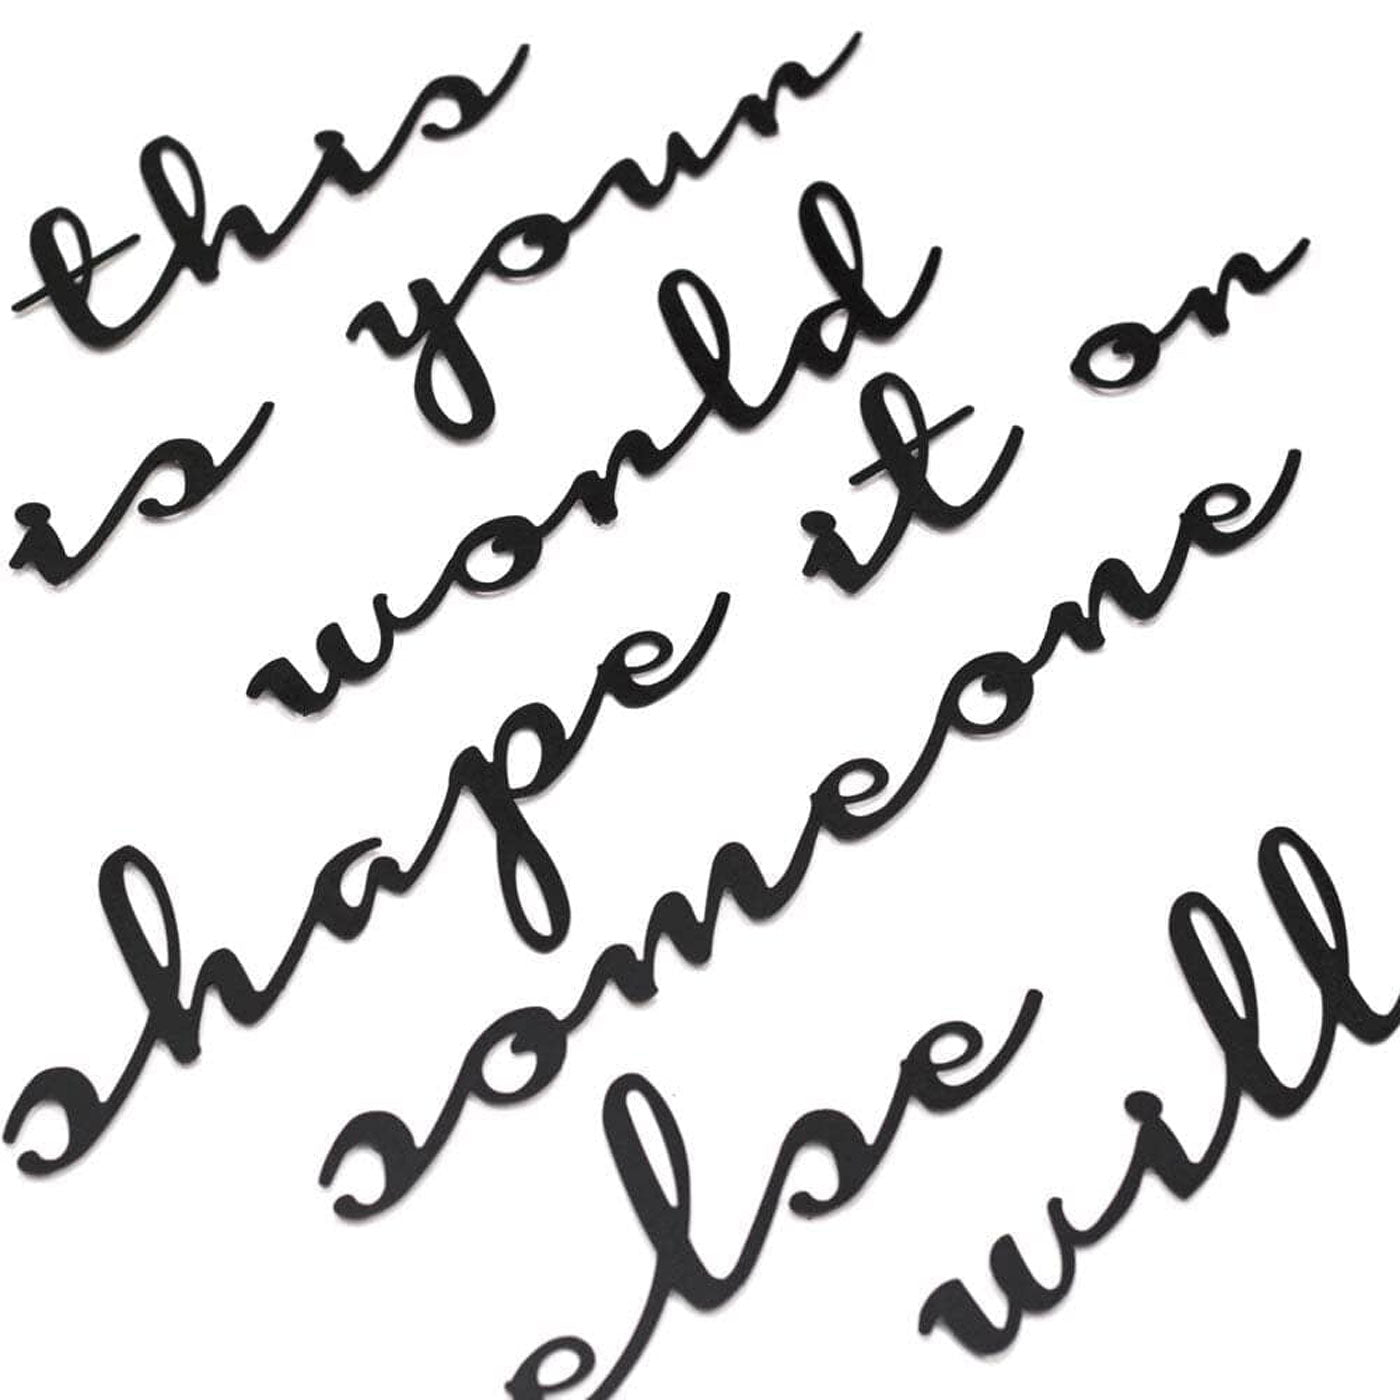 this
is your
world
shape it or
someone
else
will